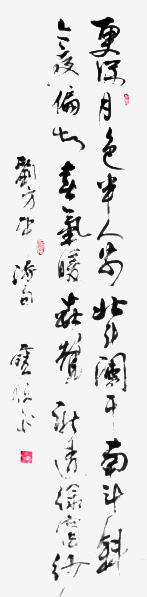 更深月色半人家北斗闌干南斗斜
今夜偏知春氣暖蟲聲新透綠窗紗
劉方平詩句